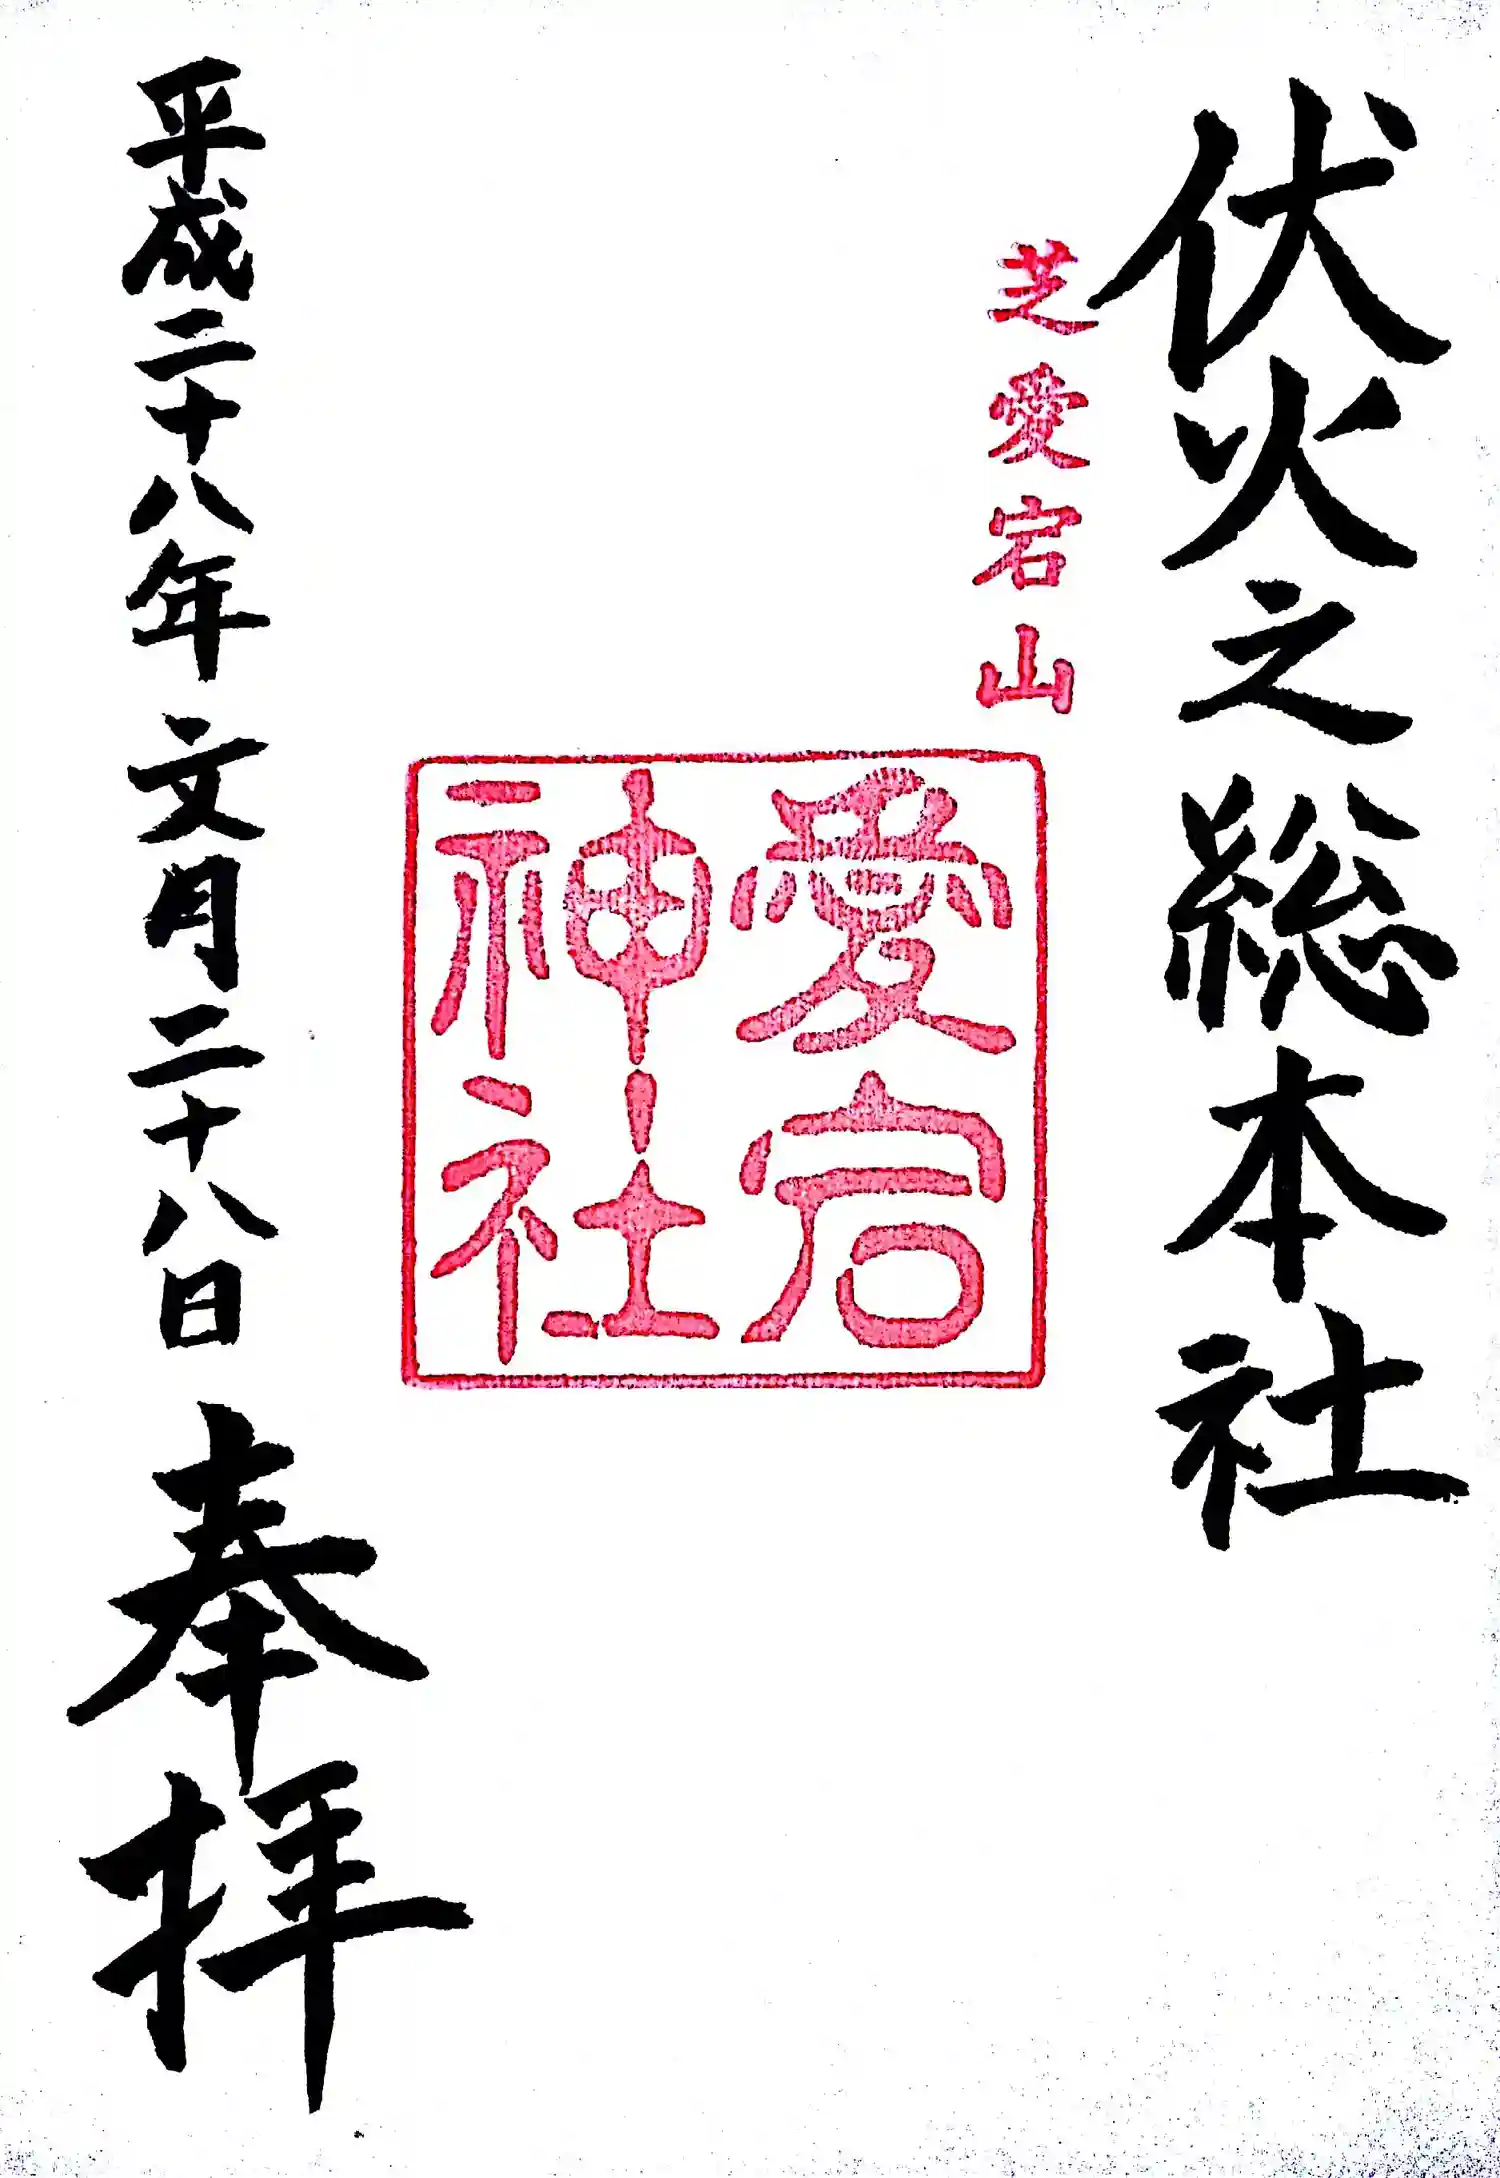 伏火之総本社
芝愛宕山
愛宕
神社
平成二十八年文月二十八日 奉拝